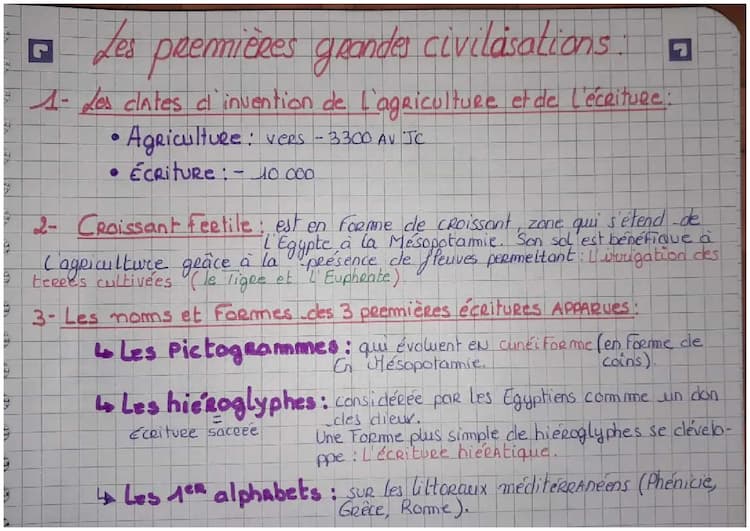 Les premières grandes civilisations :
1- Les dates d'invention de l'agriculture et de l'écriture :
• Agriculture : vers - 3300 AV JC
• Écriture : - 10 000
2- Croissant Fertile : est en forme de croissant, zone qui s'étend de
l'Egypte à la Mésopotamie. Son sol est bénéfique à
l'agriculture grâce à la présence de fleuves permettant : L'irrigation des
terres cultivées (le Tigre et l'Euphrate)
3- Les noms et formes des 3 premières écritures apparues :
↳ Les Pictogrammes : qui évoluent en cunéiforme (en forme de
En Mésopotamie. coins).
↳ Les hiéroglyphes : considérée par les Egyptiens comme un don
= des dieux.
écriture sacrée Une forme plus simple de hiéroglyphes se dévelo-
ppe : L'écriture hiératique.
↳ Les 1er alphabets : sur les littoraux méditerranéens (Phénicie,
Grèce, Rome).